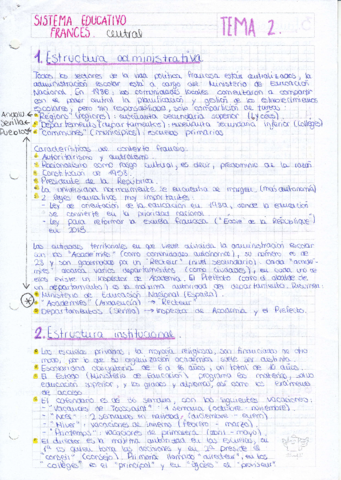 SISTEMA EDUCATIVO
FRANCÉS. central
TEMA 2.
1. Estructura administrativa
Todos los sectores de la vida política francesa están centralizados, la
administración escolar está a cargo del Ministerio de Educación
Nacional. En 1986, las comunidades locales comienzan a compartir
con el poder central la planificación y gestión de los establecimientos
escolares, pero sin responsabilidad, solo comparten de tareas.
Regiões (regiones) → secundaria superior (Lycées)
Départements (departamentos) → secundaria inferior (collèges)
"Communes" (municipios) → escuelas primarias
Características de contexto francés:
Autoritarismo y
Racionalismo como rasgo cultural, es decir, predominio de la razón
Constitución de 1958.
Presidente de la República.
La universidad francesa se encuentra al margen (más autonomía)
2 leyes educativas muy importantes:
- Ley de orientación de la educación en 1989, donde la educación
se convierte en la prioridad nacional.
- Ley para reformar la escuela francesa ("Escuela de la República")
en 2013.
Las entidades territoriales en que viene dividida la administración escolar
son las "Académies" (como comunidades autónomas), su número es de
23 y son gobernadas por un "Recteur" (nivel secundario). Cada "académie"
abarca varios departamentos (como ciudades), en cada uno de
ellos existe un Inspector de Academia. El Prefecto (como el alcalde de
un departamento) es la máxima autoridad del departamento. Resumen
Ministerio de Educación Nacional (España)
"Académies" (Andalucía) → Recteur
Departamentos (Sevilla) → Inspector de Academia y el Prefecto.
2. Estructura institucional
Las escuelas privadas, la mayoría religiosas, son financiadas de otro
modo, por lo que su organización académica suele ser distinta.
Escolarización obligatoria de 6 a 16 años, un total de 10 años.
El Estado (Ministerio de Educación) programa las materias, salvo
educación superior, y los grados y diplomas, así como los exámenes
de acceso.
El calendario es de 36 semanas, son las siguientes vacaciones:
- "Vacances de Toussaint" → 1 semana (octubre - noviembre)
- "Noël" → 2 semanas en navidad (diciembre - enero)
- "Hiver" → vacaciones de invierno (febrero - marzo)
- "Printemps" → vacaciones de primavera (abril - mayo)
El director es la máxima autoridad en las escuelas, en
"collèges" es el "principal" y en "lycées" el "proviseur"